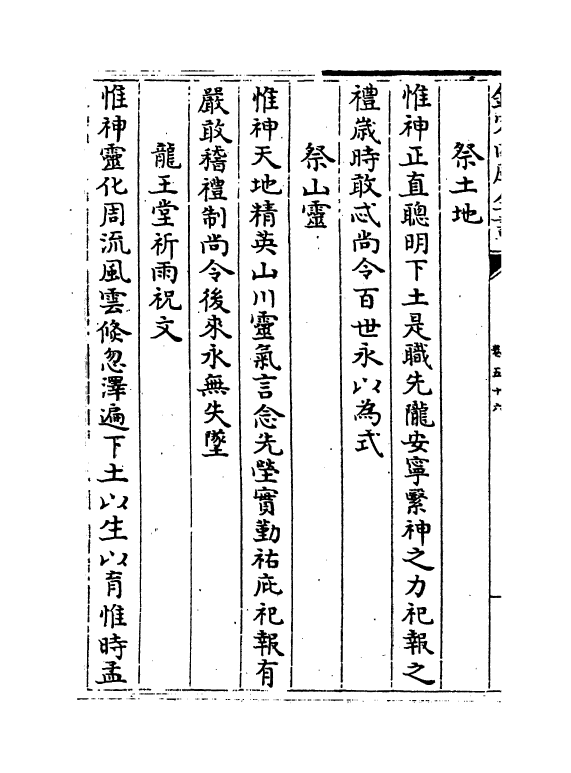 祭土地
惟神正直聰明下土是職先隴安寧繄神之力祀報之
禮歲時敢忒尚令百世永以為式
祭山靈
惟神天地精英山川靈氣言念先塋實勤祐庇祀報有
嚴敢稽禮制尚令後來永無失墜
龍王堂祈雨祝文
惟神靈化周流風雲倏忽澤遍下土以生以育惟時孟
卷五十六